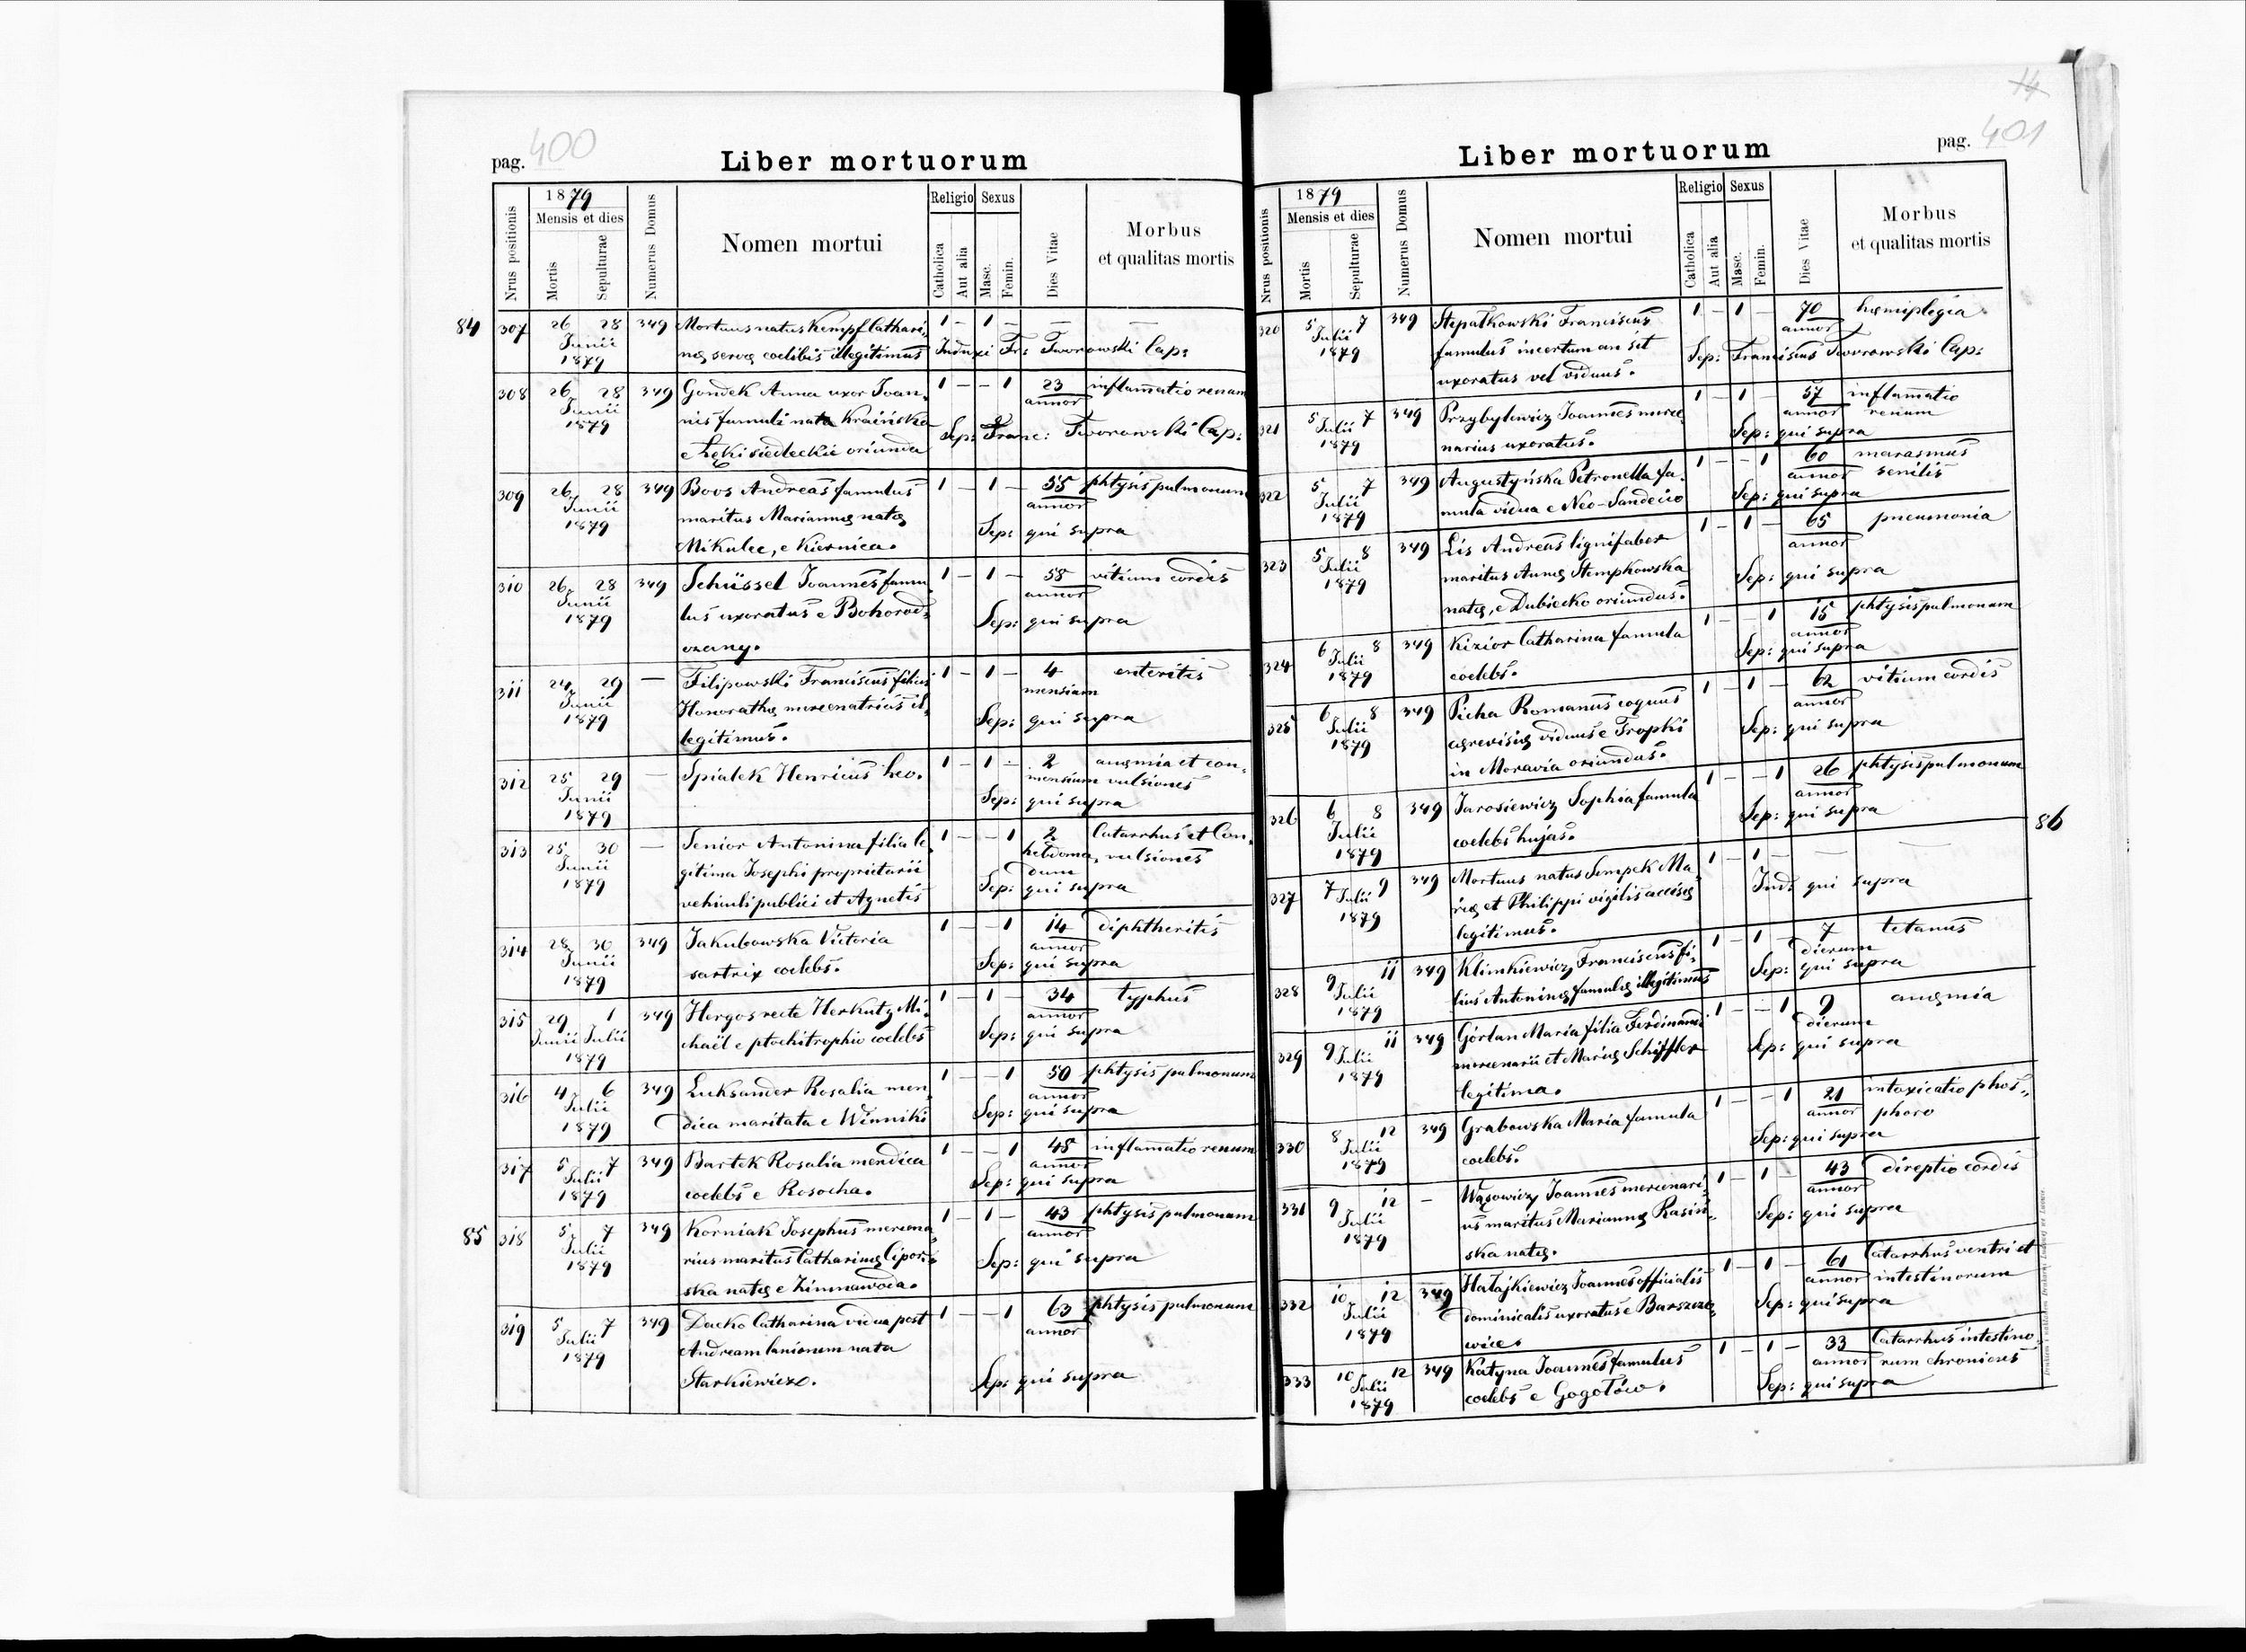 pag. 400
Liber mortuorum
Nrus positionis
1879
Mensis et dies
Mortis
Sepulturae
Numerus Domus
Nomen mortui
Religio
Catholica
Aut alia
Sexus
Masc.
Femin.
Dies Vitae
Morbus
et qualitas mortis
84 307 26 28 349 Mortuus natus Kempf Cathari- 1 – 1 – — —
Junii næ servæ coelibis illegitimus Induxi Fr: Tworowski Cap:
1879
308 26 28 349 Gondek Anna uxor Joan- 1 – – 1 23 inflamatio renum
Junii nis famuli nata Kraińska annor
1879 Sep: Franc: Tworowski Cap:
e Łęki siedleckie oriunda
309 26 28 349 Boos Andreas famulus 1 – 1 – 55 phtysis pulmonum
Junii maritus Mariannæ natæ annor
1879 Mikulec, e Kiernica. Sep: qui supra
310 26 28 349 Schüssel Joannes famu- 1 – 1 – 58 vitium cordis
Junii lus uxoratus e Bohorod- annor
1879 czany. Sep: qui supra
311 24 29 — Filipowski Franciscus filius 1 – 1 – 4 enteritis
Junii Honorathæ mercenatricis il- mensium
1879 legitimus. Sep: qui supra
312 25 29 — Spialek Henricus heo. 1 – 1 – 2 anæmia et con-
Junii mensium vulsiones
1879 Sep: qui supra
313 25 30 — Senior Antonina filia le- 1 – – 1 2 Catarrhus et Con-
Junii gitima Josephi proprietarii hebdoma- vulsiones
1879 vehiculi publici et Agnetis dum
Sep: qui supra
314 28 30 349 Jakubowska Victoria 1 – – 1 14 diphtheritis
Junii sartrix coelebs. annor
1879 Sep: qui supra
315 29 1 349 Hergos recte Herkutz Mi- 1 – 1 – 34 typhus
Junii Julii chaël e ptochitrophio coelebs annor
1879 Sep: qui supra
316 4 6 349 Luksander Rosalia men- 1 – – 1 50 phtysis pulmonum
Julii dica maritata e Winniki annor
1879 Sep: qui supra
317 5 7 349 Bartek Rosalia mendica 1 – – 1 45 inflamatio renum
Julii coelebs e Rosocha. annor
1879 Sep: qui supra
85 318 5 7 349 Korniak Josephus mercena- 1 – 1 – 43 phtysis pulmonum
Julii rius maritus Catharinæ Cipor- annor
1879 ska natæ e Zimnawoda. Sep: qui supra
319 5 7 349 Dacko Catharina vidua post 1 – – 1 63 phtysis pulmonum
Julii Andream lanionem nata annor
1879 Starkiewicz. Sep: qui supra
14
pag. 401
Liber mortuorum
Nrus positionis
1879
Mensis et dies
Mortis
Sepulturae
Numerus Domus
Nomen mortui
Religio
Catholica
Aut alia
Sexus
Masc.
Femin.
Dies Vitae
Morbus
et qualitas mortis
320 5 7 349 Stepałkowski Franciscus 1 – 1 – 70 hæmiplegia
Julii famulus incertum an sit annor
1879 uxoratus vel viduus. Sep: Franciscus Tworowski Cap:
321 5 7 349 Przybylewicz Joannes merce- 1 – 1 – 57 inflamatio
Julii narius uxoratus. annor renum
1879 Sep: qui supra
322 5 7 349 Augustyńska Petronella fa- 1 – – 1 60 marasmus
Julii mula vidua e Neo-Sandecio annor senilis
1879 Sep: qui supra
323 5 8 349 Lis Andreas lignifaber 1 – 1 – 65 pneumonia
Julii maritus Annæ Stempkowska annor
1879 natæ, e Dubiecko oriundus. Sep: qui supra
324 6 8 349 Kizior Catharina famula 1 – – 1 15 phtysis pulmonum
Julii coelebs. annor
1879 Sep: qui supra
325 6 8 349 Picha Romanus coquus 1 – 1 – 62 vitium cordis
Julii cerevisiæ viduus e Tropki annor
1879 in Moravia oriundus. Sep: qui supra
326 6 8 349 Jarosiewicz Sophia famula 1 – – 1 26 phtysis pulmonum
Julii coelebs hujas. annor
1879 Sep: qui supra
86
327 7 9 349 Mortuus natus Sempek Ma- 1 – 1 – — —
Julii riæ et Philippi vigilis accisæ Ind: qui supra
1879 legitimus.
328 9 11 349 Klimkiewicz Franciscus fi- 1 – 1 – 7 tetanus
Julii lius Antoninæ famulæ illegitimus dierum
1879 Sep: qui supra
329 9 11 349 Górlan Maria filia Ferdinandi 1 – – 1 9 anæmia
Julii mercenarii et Mariæ Schiffler dierum
1879 legitima. Sep: qui supra
330 8 12 349 Grabowska Maria famula 1 – – 1 21 intoxicatio phos-
Julii coelebs. annor phoro
1879 Sep: qui supra
331 9 12 – Wąsowicz Joannes mercenari- 1 – 1 – 43 direptio cordis
Julii us maritus Mariannæ Rasiń- annor
1879 ska natæ. Sep: qui supra
332 10 12 349 Hałajkiewicz Joannes officialis 1 – 1 – 61 Catarrhus ventri et
Julii dominicalis uxoratus e Barszczo- annor intestinorum
1879 wice. Sep: qui supra
333 10 12 349 Katyna Joannes famulus 1 – 1 – 33 Catarrhus intestino-
Julii coelebs e Gogołów. annor rum chronicus
1879 Sep: qui supra